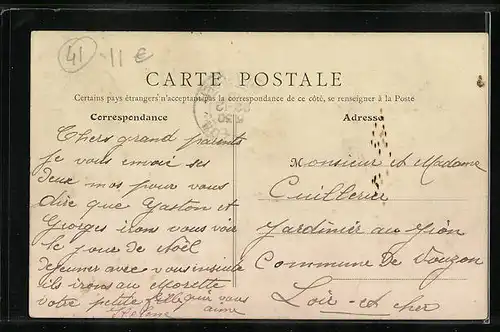 41 11 €
CARTE POSTALE
Certains pays étrangers n'acceptant pas la correspondance de ce côté, se renseigner à la Poste
Correspondance
Chers grand parents
Je vous envoi ses
deux mos pour vous
dire que Gaston et
Georges iron vous voir
le jour de Noël
dejeuner avec vous insuite
ils irons au Morette
votre petite fille qui vous
Helene aime
Adresse
Monsieur et Madame
Cuillerier
Jardinier au Gion
Commune De Vouzon
Loir-et cher